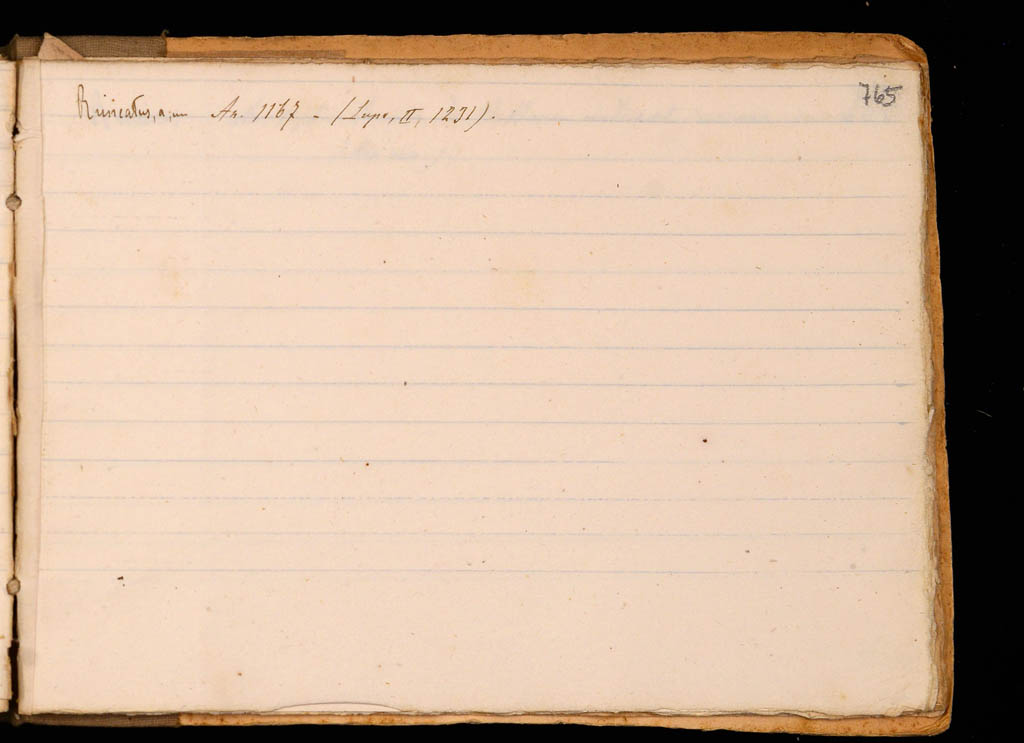 765
a, um An. 1167 - (Lupo, II, 1231).